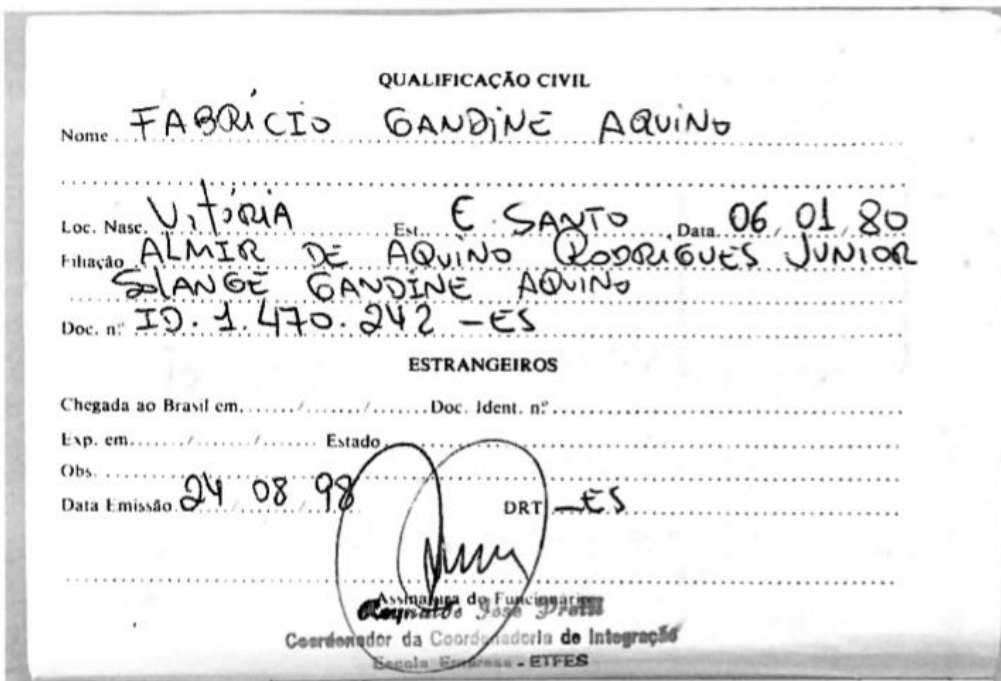 QUALIFICAÇÃO CIVIL
Nome FABRÍCIO GANDINE AQUINO
Loc. Nasc. VITÓRIA Est. E. SANTO Data 06 / 01 / 80
Filiação ALMIR DE AQUINO RODRIGUES JUNIOR
SOLANGE GANDINE AQUINO
Doc. nº ID. 1.470.242 - ES
ESTRANGEIROS
Chegada ao Brasil em ....... / ....... / ....... Doc. Ident. nº
Exp. em ....... / ....... / ....... Estado
Obs.
Data Emissão 24 / 08 / 98 DRT - ES
Assinatura do Funcionário
José
Coordenador da Coordenadoria de Integração
Escola Empresa - ETFES